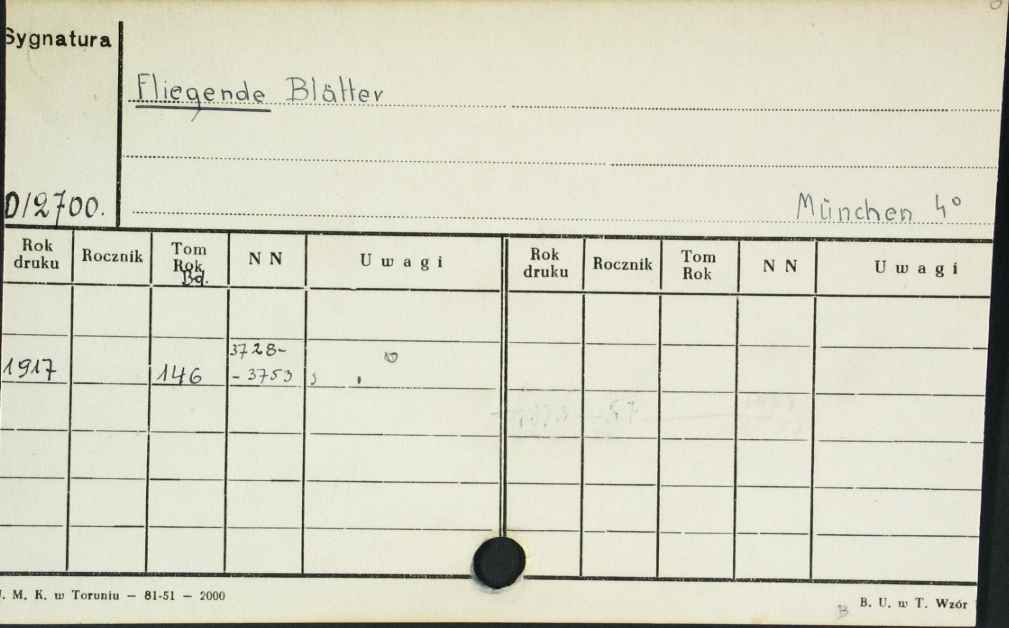 Sygnatura
Fliegende Blätter
D/2700.
München 4°
Rok druku Rocznik Tom Rok Bd. N N Uwagi Rok druku Rocznik Tom Rok N N Uwagi
3728-
1917 146 - 3753
. M. K. w Toruniu — 81-51 — 2000
B B. U. w T. Wzór